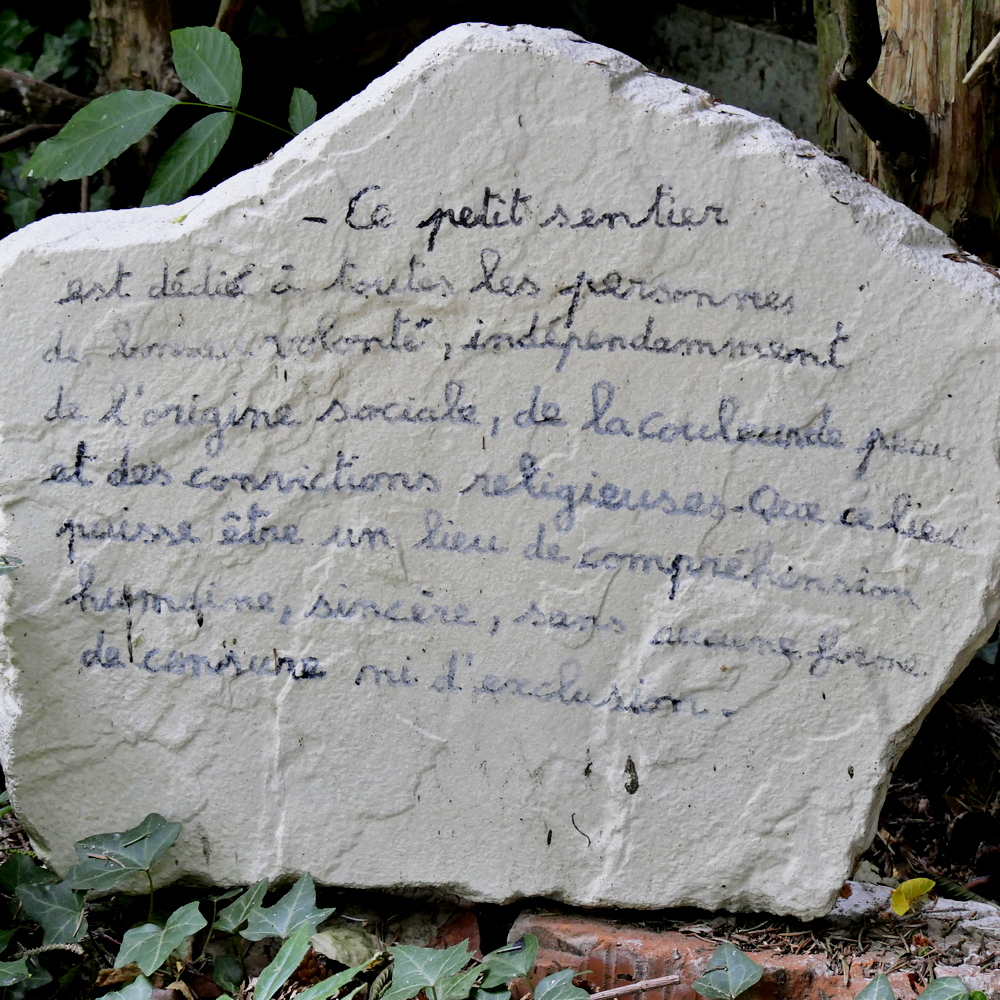 - Ce petit sentier
est dédié à toutes les personnes
de bonne volonté, indépendamment
de l'origine sociale, de la couleur de peau
et des convictions religieuses - Que ce lieu
puisse être un lieu de compréhension
humaine, sincère, sans aucune forme
de censure ni d'exclusion.-